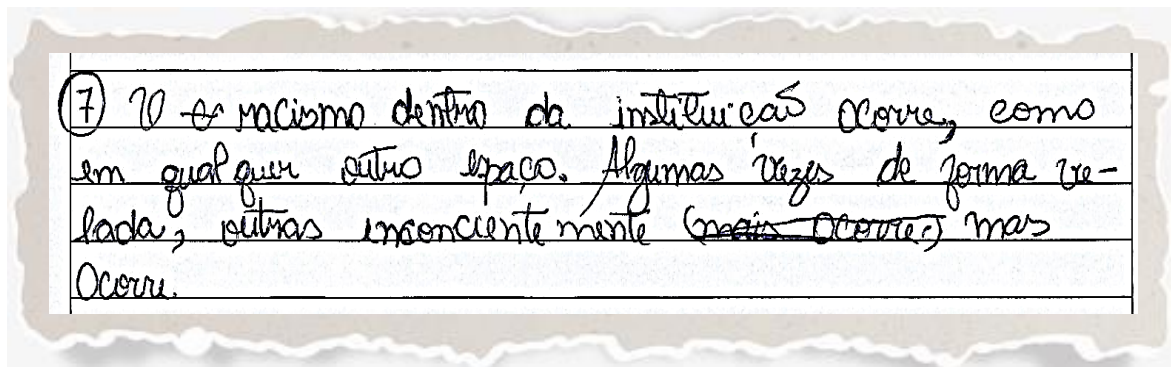 7 O racismo dentro da instituição ocorre, como
em qualquer outro espaço. Algumas vezes de forma ve-
lada, outras insconciente mente (mais ocorre,) mas
Ocorre.